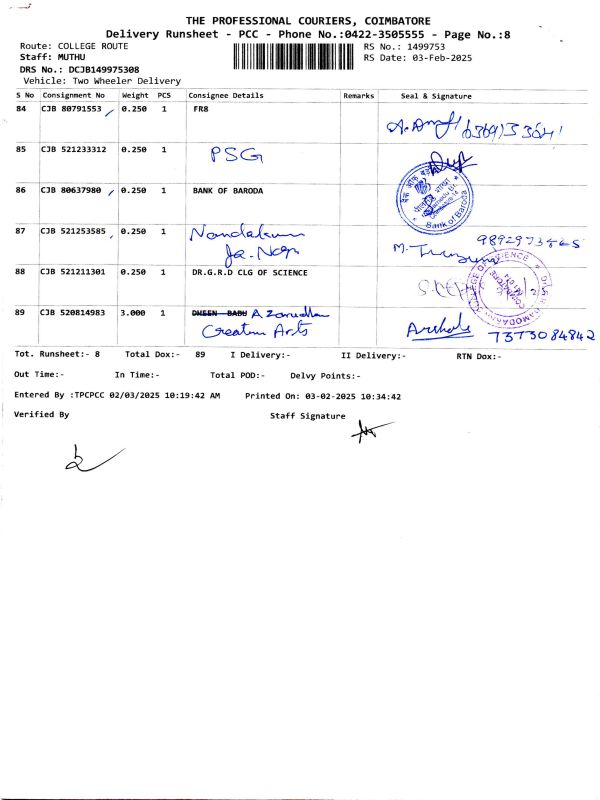 THE PROFESSIONAL COURIERS, COIMBATORE
Delivery Runsheet - PCC - Phone No.:0422-3505555 - Page No.:8
Route: COLLEGE ROUTE RS No.: 1499753
Staff: MUTHU RS Date: 03-Feb-2025
DRS No.: DCJB149975308
Vehicle: Two Wheeler Delivery
S No Consignment No Weight PCS Consignee Details Remarks Seal & Signature
84 CJB 80791553 0.250 1 FR8
85 CJB 521233312 0.250 1 PSG
86 CJB 80637980 0.250 1 BANK OF BARODA
Bank of Baroda
87 CJB 521253585 0.250 1
88 CJB 521211301 0.250 1 DR.G.R.D CLG OF SCIENCE
89 CJB 520814983 3.000 1 DHEEN BABU
Arts 7373084842
Tot. Runsheet:- 8 Total Dox:- 89 I Delivery:- II Delivery:- RTN Dox:-
Out Time:- In Time:- Total POD:- Delvy Points:-
Entered By :TPCPCC 02/03/2025 10:19:42 AM Printed On: 03-02-2025 10:34:42
Verified By Staff Signature